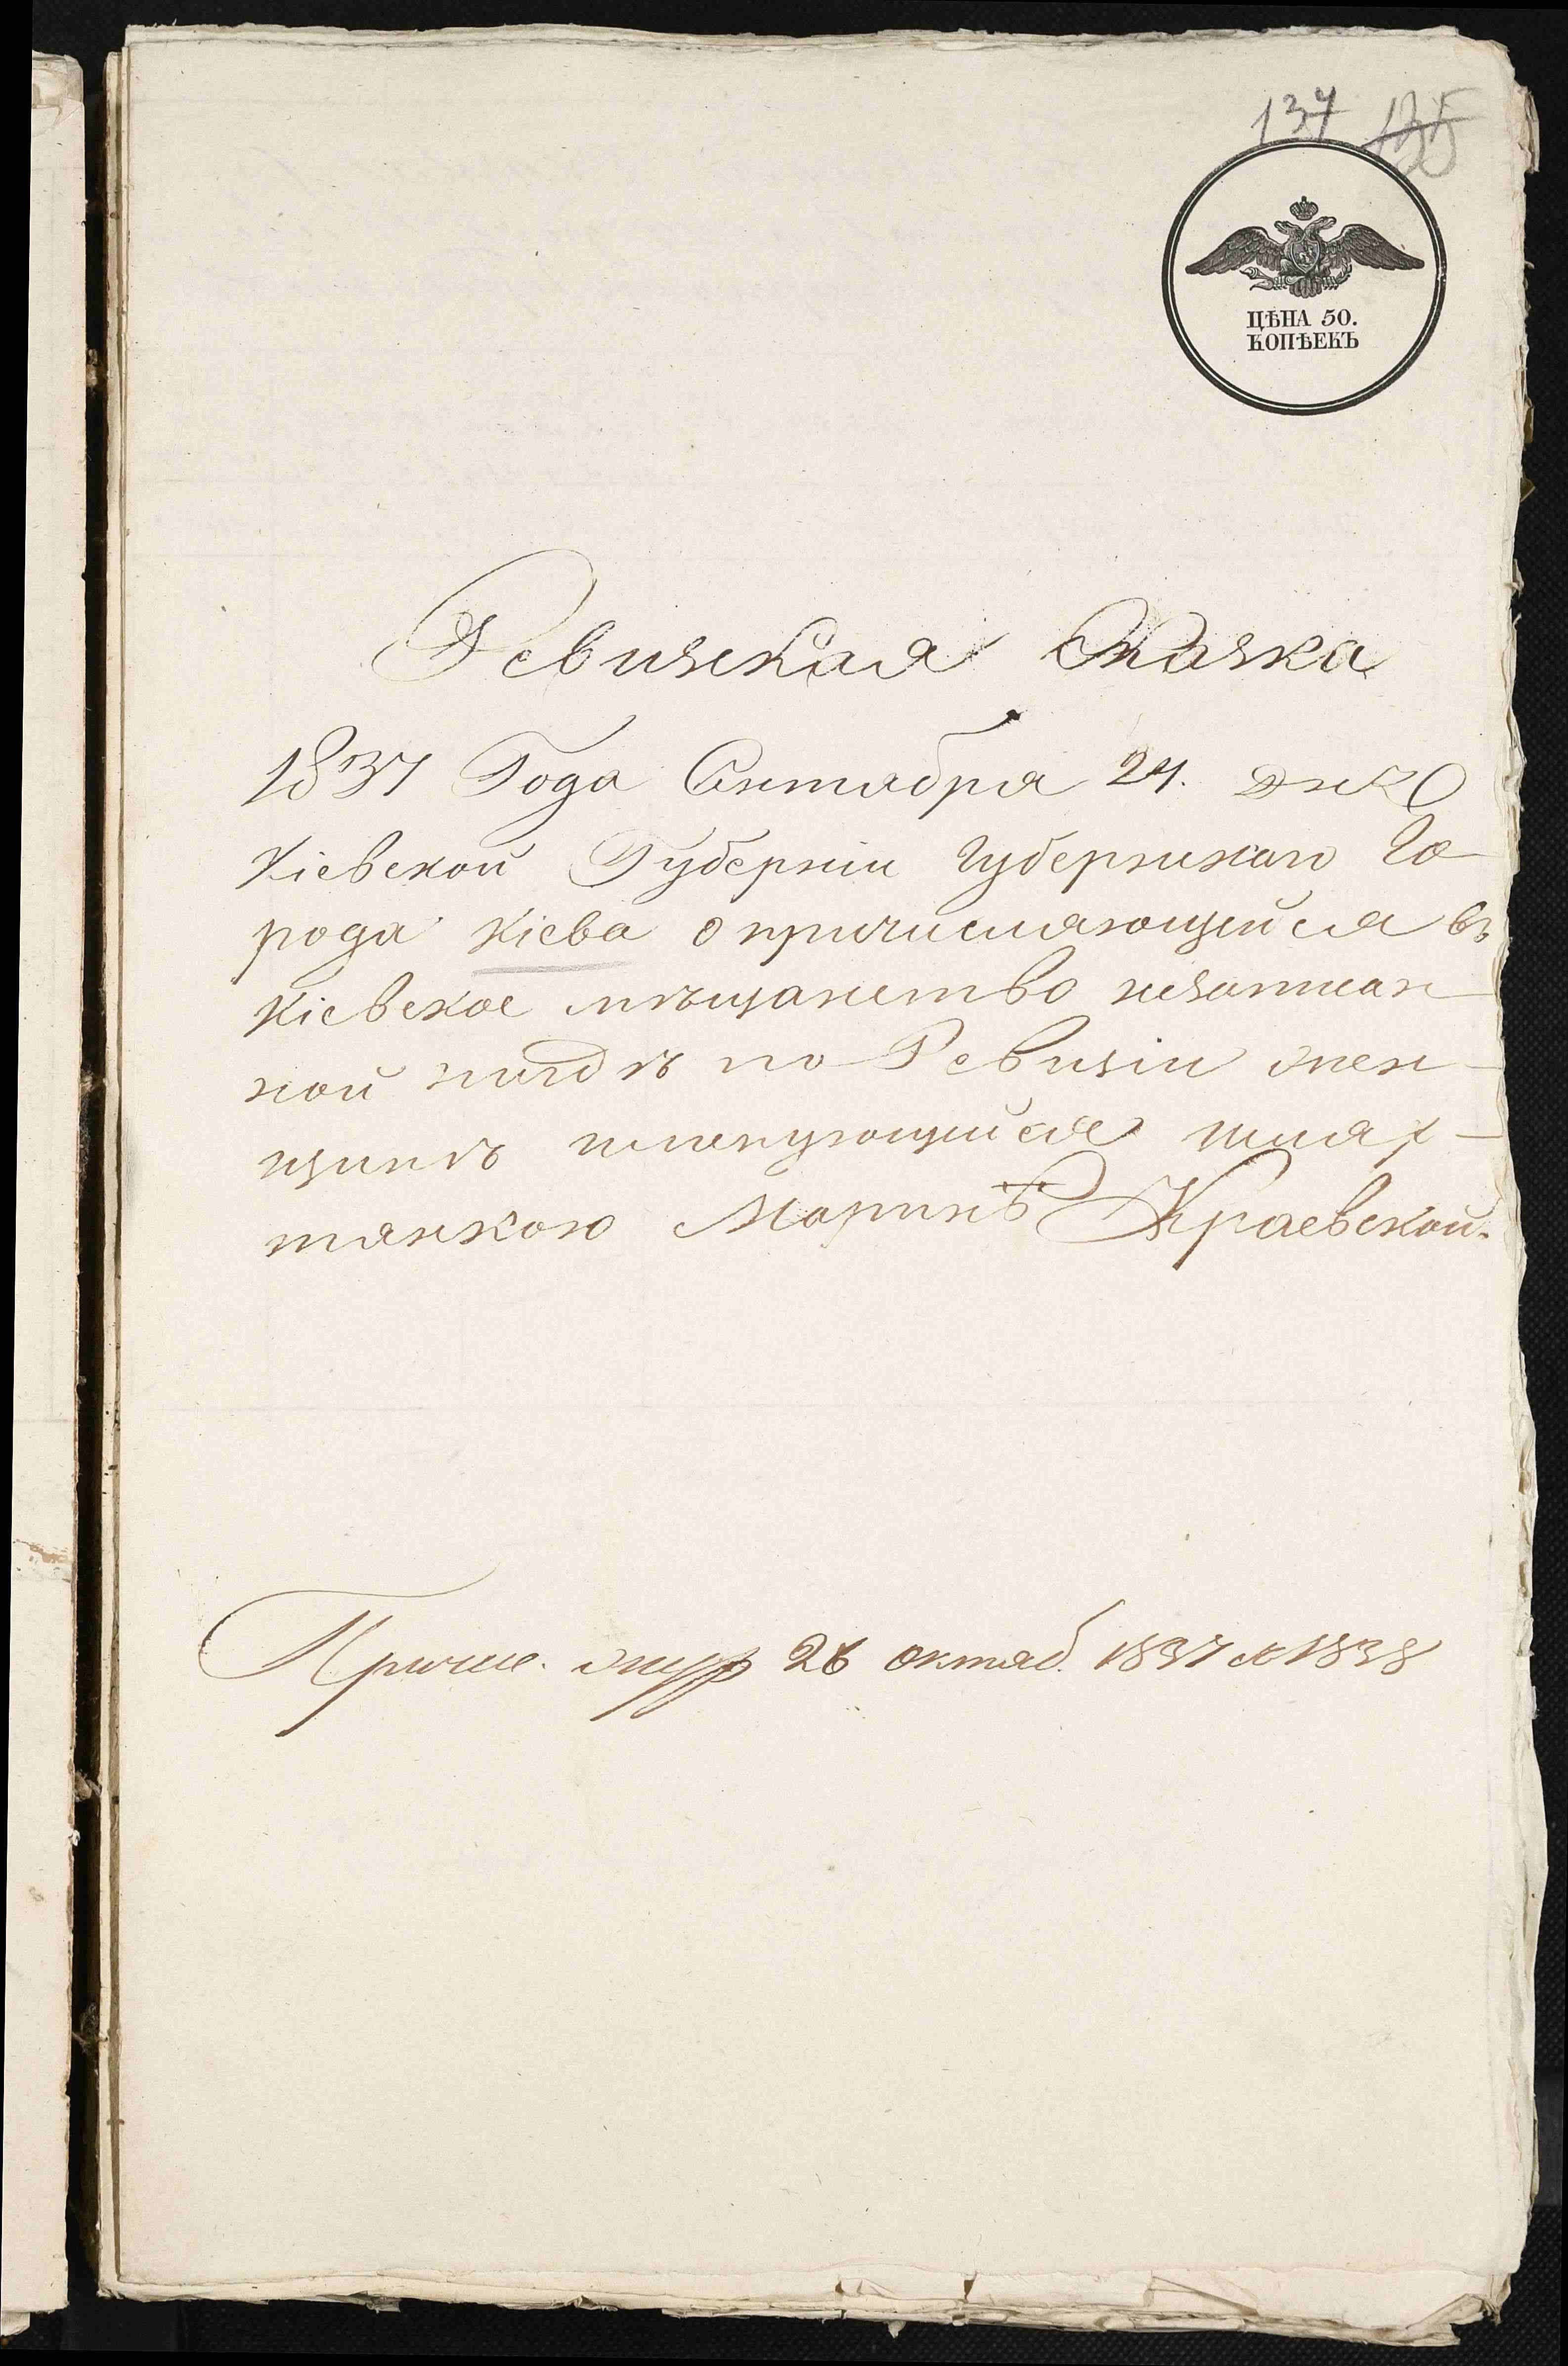 137 135
ЦѢНА 50.
КОПѢЕКЪ
Ревизская Сказка
1837 Года Сентября 24. дня
Кіевской Губерніи Губернскаго Го-
рода Кіева о причисляющейся въ
Кіевское мѣщанство незаписан-
ной нигдѣ по Ревизіи жен-
щинѣ именующейся шлях-
тянкою Маринѣ Краевской.
Причис. 26 октяб. 1837 с 1838